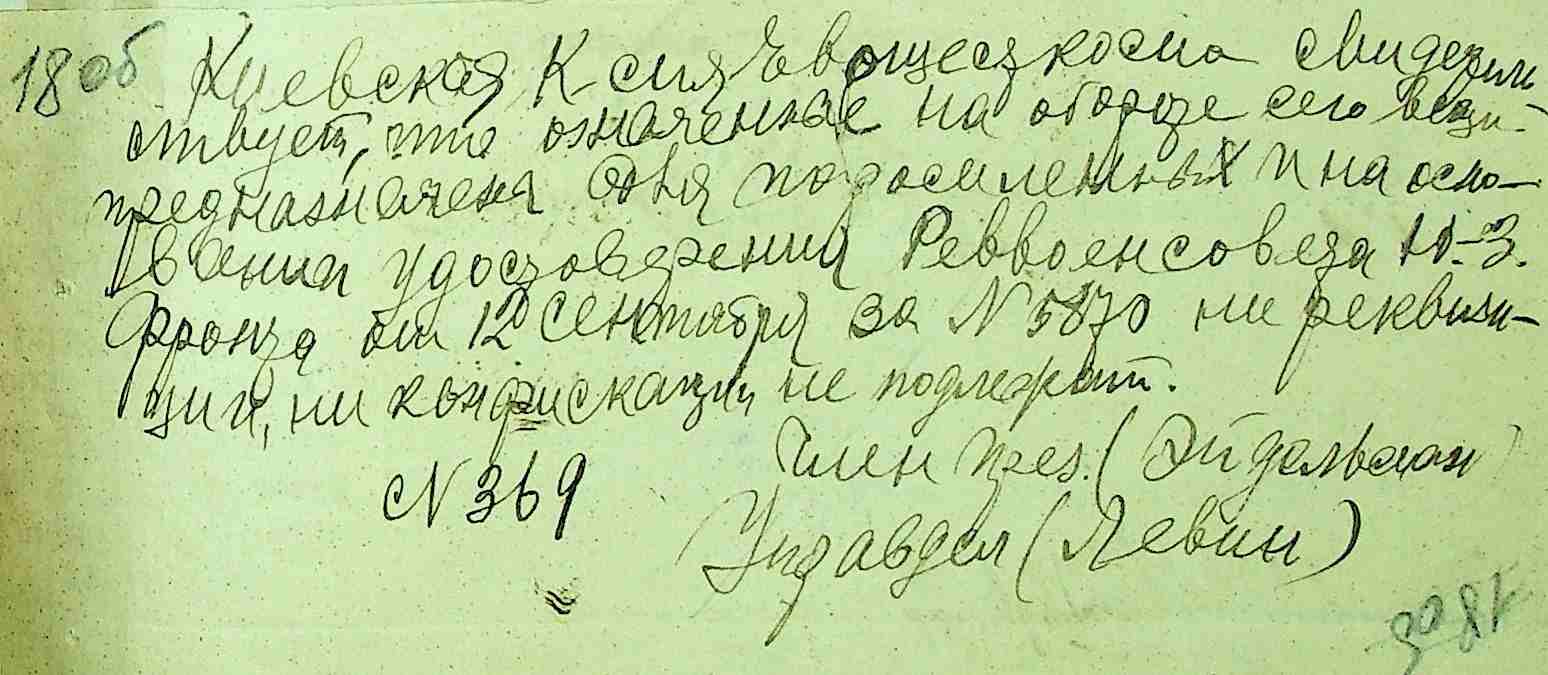 18об Киевская К-сия Евощесткома свидетель
ствует, что означенные на обороте сего вещи
предназначена для подосиленных и на осно-
вании удостоверения Реввоенсовета Ю-З.
Фронта от 12 сентября за N 5870 ни реквизи-
ции, ни конфискации не подлежат.
Член През. (Эйдельман)
N 369
Управдел (Левин)
18об